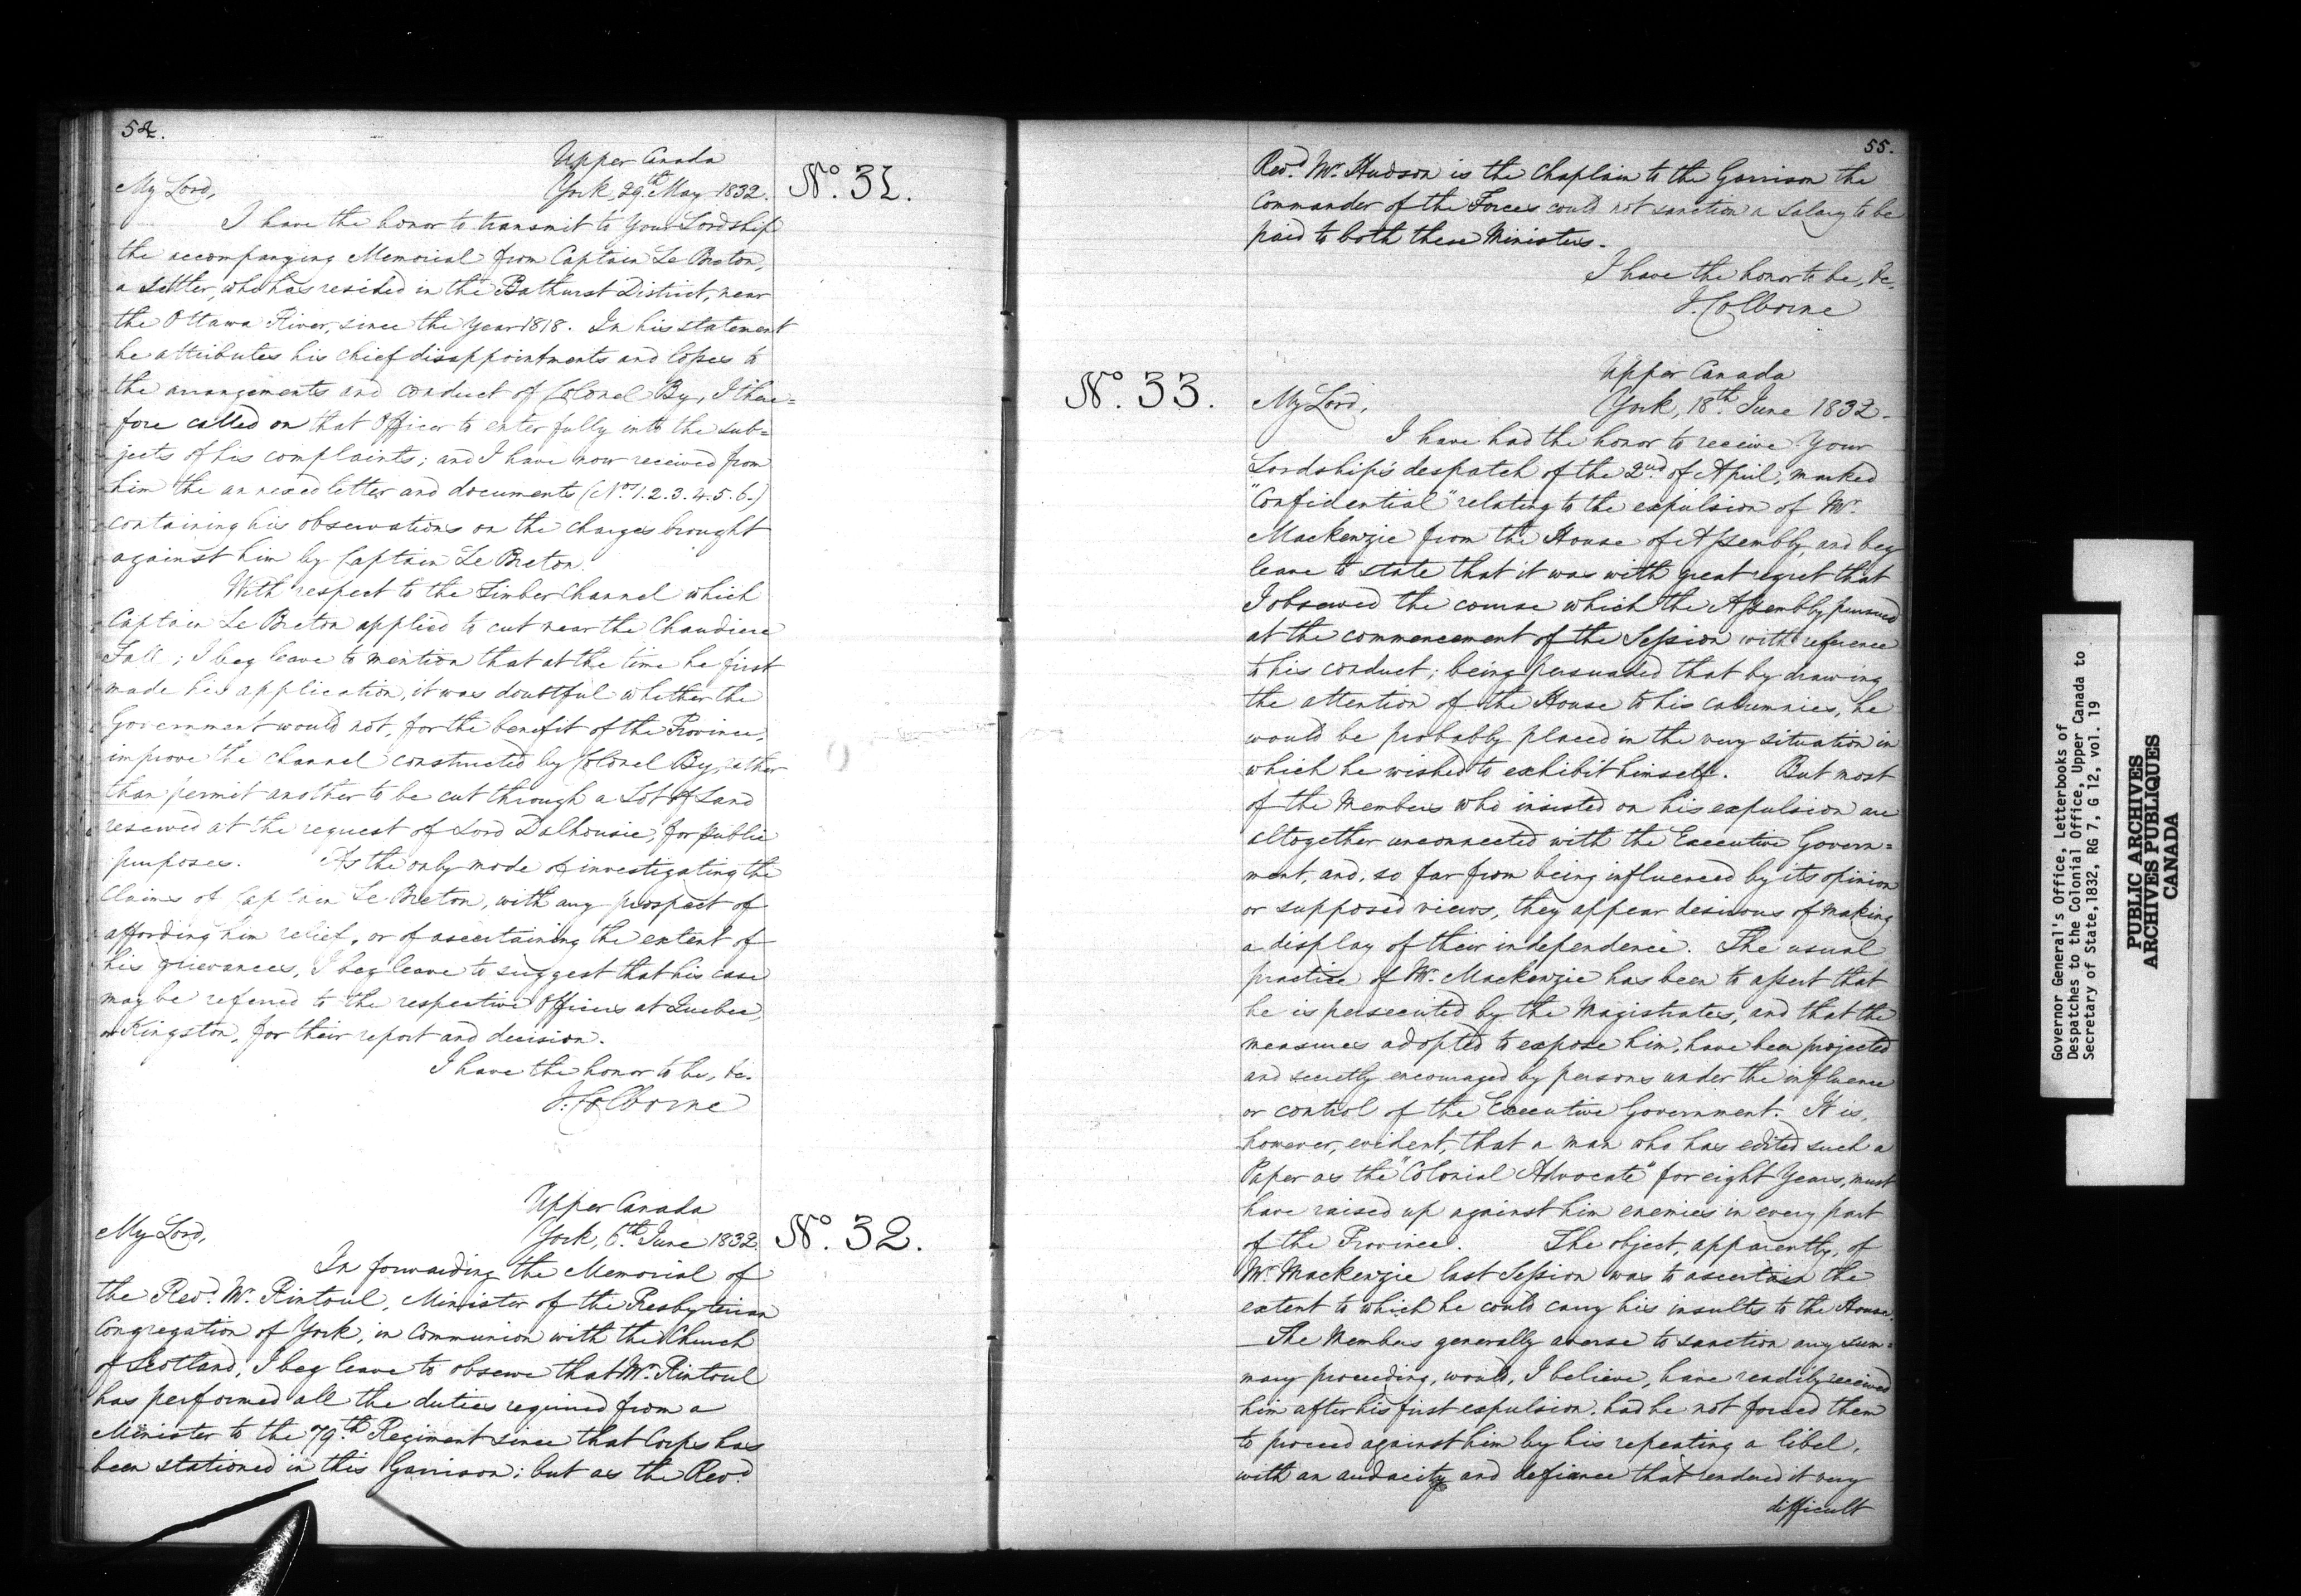 54.
Upper Canada
York, 29th May 1832.
No. 31.
My Lord,
I have the honor to transmit to Your Lordship
the accompanying Memorial from Captain Le Breton,
a Settler, who has resided in the Bathurst District, near
the Ottawa River, since the Year 1818. In his statement
he attributes his chief disappointments and losses to
the arrangements and conduct of Colonel By, I there=
fore called on that Officer to enter fully into the sub=
jects of his complaints; and I have now received from
him the annexed letter and documents (Nos. 1.2.3.4.5.6.)
containing his observations on the charges brought
against him by Captain Le Breton.
With respect to the Timber Channel which
Captain Le Breton applied to cut near the Chaudiere
Fall; I beg leave to mention that at the time he first
made his application, it was doubtful whether the
Government would not, for the benefit of the Province,
improve the channel constructed by Colonel By, rather
than permit another to be cut through a Lot of Land
reserved at the request of Lord Dalhousie, for public
purposes. As the only mode of investigating the
Claims of Captain Le Breton, with any prospect of
affording him relief, or of ascertaining the extent of
his grievances, I beg leave to suggest that his case
may be referred to the respective Officers at Quebec,
or Kingston, for their report and decision.
I have the honor to be, &c.
J. Colborne
Upper Canada
York, 6th June 1832.
No. 32.
My Lord,
In forwarding the Memorial of
the Revd. Mr. Rintoul, Minister of the Presbyterian
Congregation of York, in Communion with the Church
of Scotland, I beg leave to observe that Mr. Rintoul
has performed all the duties required from a
Minister to the 79th Regiment since that Corps has
been stationed in this Garrison; but as the Revd.
55.
Revd. Mr. Hudson is the Chaplain to the Garrison the
Commander of the Forces could not sanction a Salary to be
paid to both these Ministers.
I have the honor to be, &c.
J. Colborne
Upper Canada
No. 33.
York, 18th June 1832.
My Lord,
I have had the honor to receive Your
Lordship's despatch of the 2nd of April, marked
"Confidential" relating to the expulsion of Mr.
Mackenzie from the House of Assembly, and beg
leave to state that it was with great regret that
I observed the course which the Assembly pursued
at the commencement of the Session with reference
to his conduct; being persuaded that by drawing
the attention of the House to his calumnies, he
would be probably placed in the very situation in
which he wished to exhibit himself. But most
of the Members who insisted on his expulsion are
altogether unconnected with the Executive Govern=
ment, and, so far from being influenced by its opinion
or supposed views, they appear desirous of making
a display of their independence. The usual
practice of Mr. Mackenzie has been to assert that
he is persecuted by the Magistrates, and that the
measures adopted to expose him, have been projected
and secretly encouraged by persons under the influence
or control of the Executive Government. It is,
however, evident, that a man who has edited such a
Paper as the "Colonial Advocate" for eight Years, must
have raised up against him enemies in every part
of the Province. The object, apparently, of
Mr. Mackenzie last Session was to ascertain the
extent to which he could carry his insults to the House.
—The Members generally averse to sanction any sum=
mary proceeding, would, I believe, have readily received
him after his first expulsion, had he not forced them
to proceed against him by his repeating a libel,
with an audacity and defiance that rendered it very
difficult
Governor General's Office, Letterbooks of
Despatches to the Colonial Office, Upper Canada to
Secretary of State,1832, RG 7, G 12, vol. 19
PUBLIC ARCHIVES
ARCHIVES PUBLIQUES
CANADA